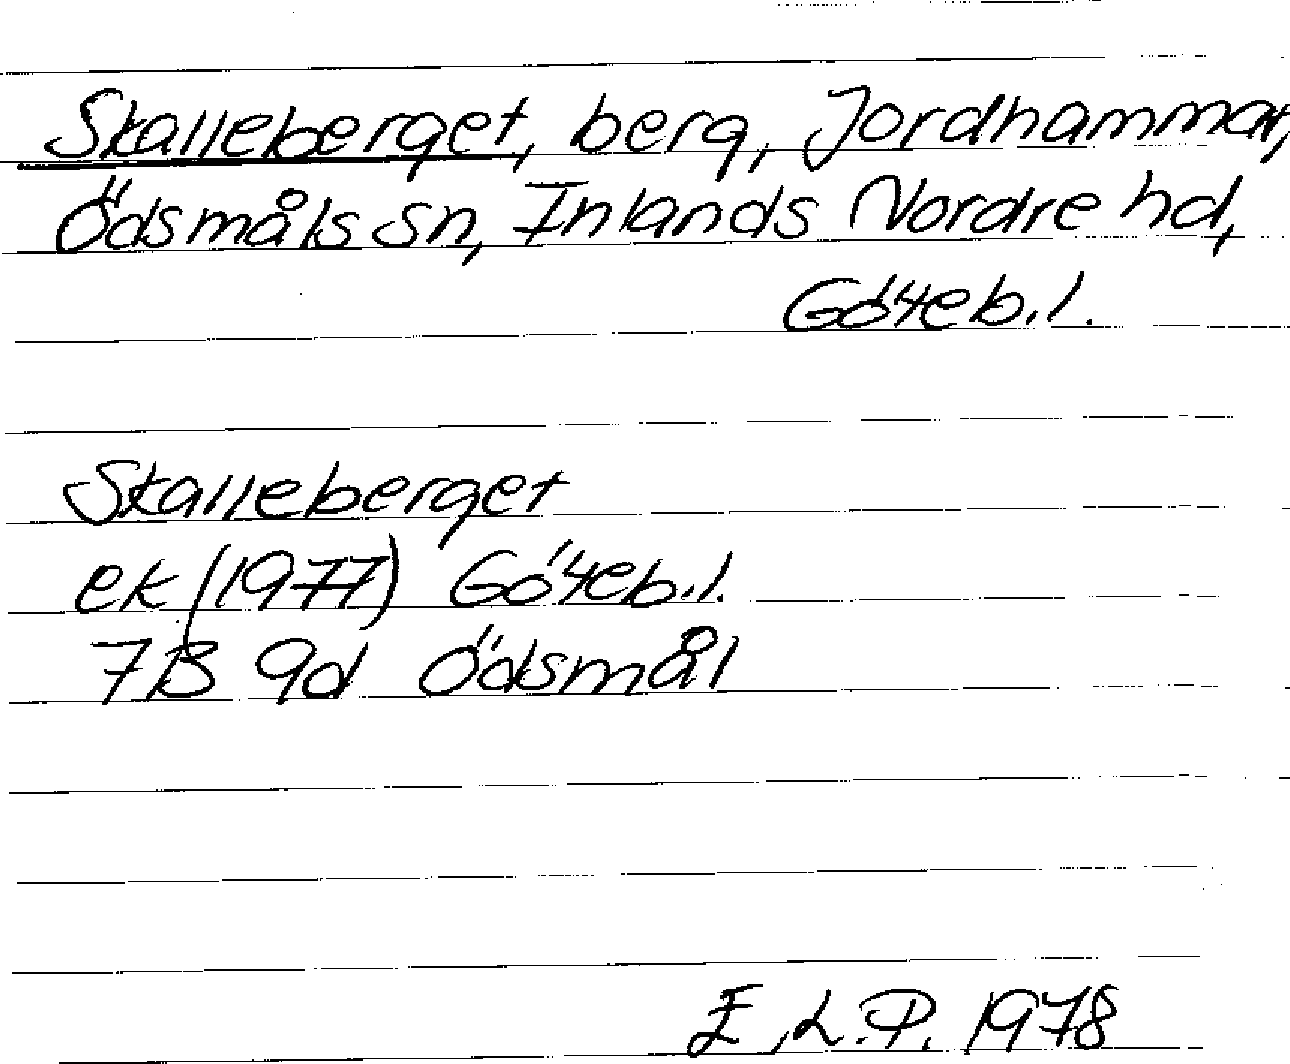 Skalleberget, berg, Jordhammar,
Ödsmåls sn, Inlands Nordre hd,
Göteb.l.
Skalleberget
ek (1977) Göteb.l.
7B 9d Ödsmål
E.L.P. 1978